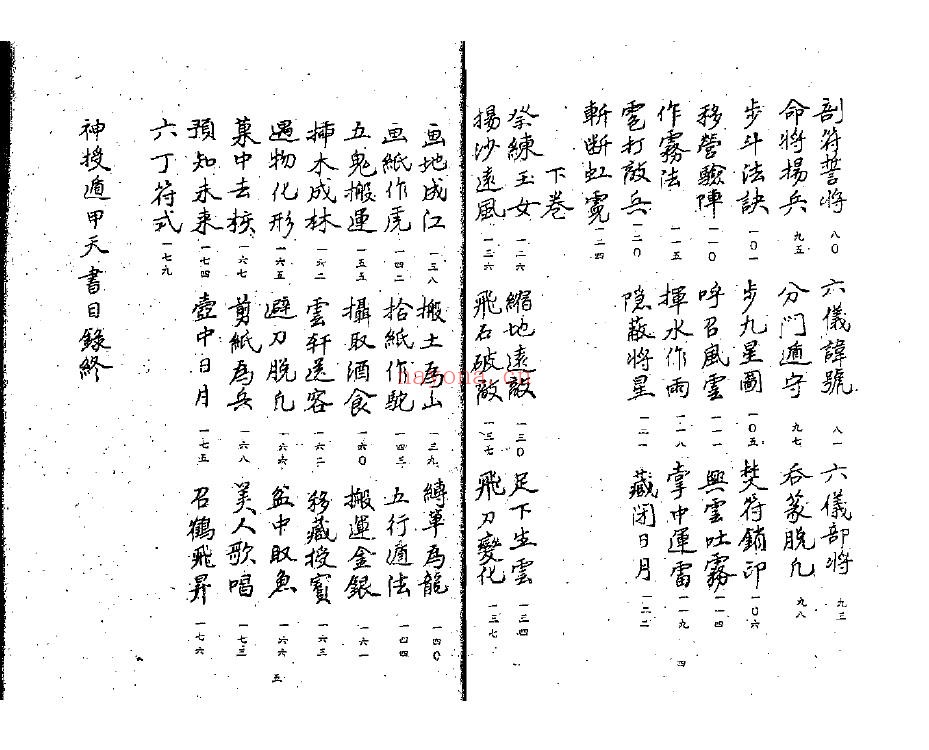 剖符誓將 八〇 六儀諱號 八一 六儀部將 九三
命將揚兵 九五 分門遁守 九七 吞篆脫凢 九八
步斗法訣 一〇一 步九星圖 一〇五 焚符鎖印 一〇六
移營驗陣 一一〇 呼召風雲 一一一 興雲吐霧 一一四
作霧法 一一五 揮水作雨 一一八 掌中運雷 一一九
雹打敵兵 一二〇 隱蔽將星 一二一 藏閉日月 一二二
斬斷虹霓 一二四
下卷
祭練玉女 一二六 縮地遠敵 一三〇 足下生雲 一三四
揚沙遠風 一三六 飛石破敵 一三七 飛刀變化 一三七
四
画地成江 一三八 搬土為山 一三九 縛草為龍 一四〇
画紙作虎 一四二 拾紙作駝 一四三 五行遁法 一四四
五鬼搬運 一五五 攝取酒食 一六〇 搬運金銀 一六一
插木成林 一六二 雲軒送客 一六二 移藏授寶 一六三
遇物化形 一六五 避刀脫凢 一六六 盆中取魚 一六六
菓中去核 一六七 剪紙為兵 一六八 美人歌唱 一七三
預知未来 一七四 壺中日月 一七五 召鶴飛昇 一七六
六丁符式 一七九
神授遁甲天書目錄終
五
nayona.cn